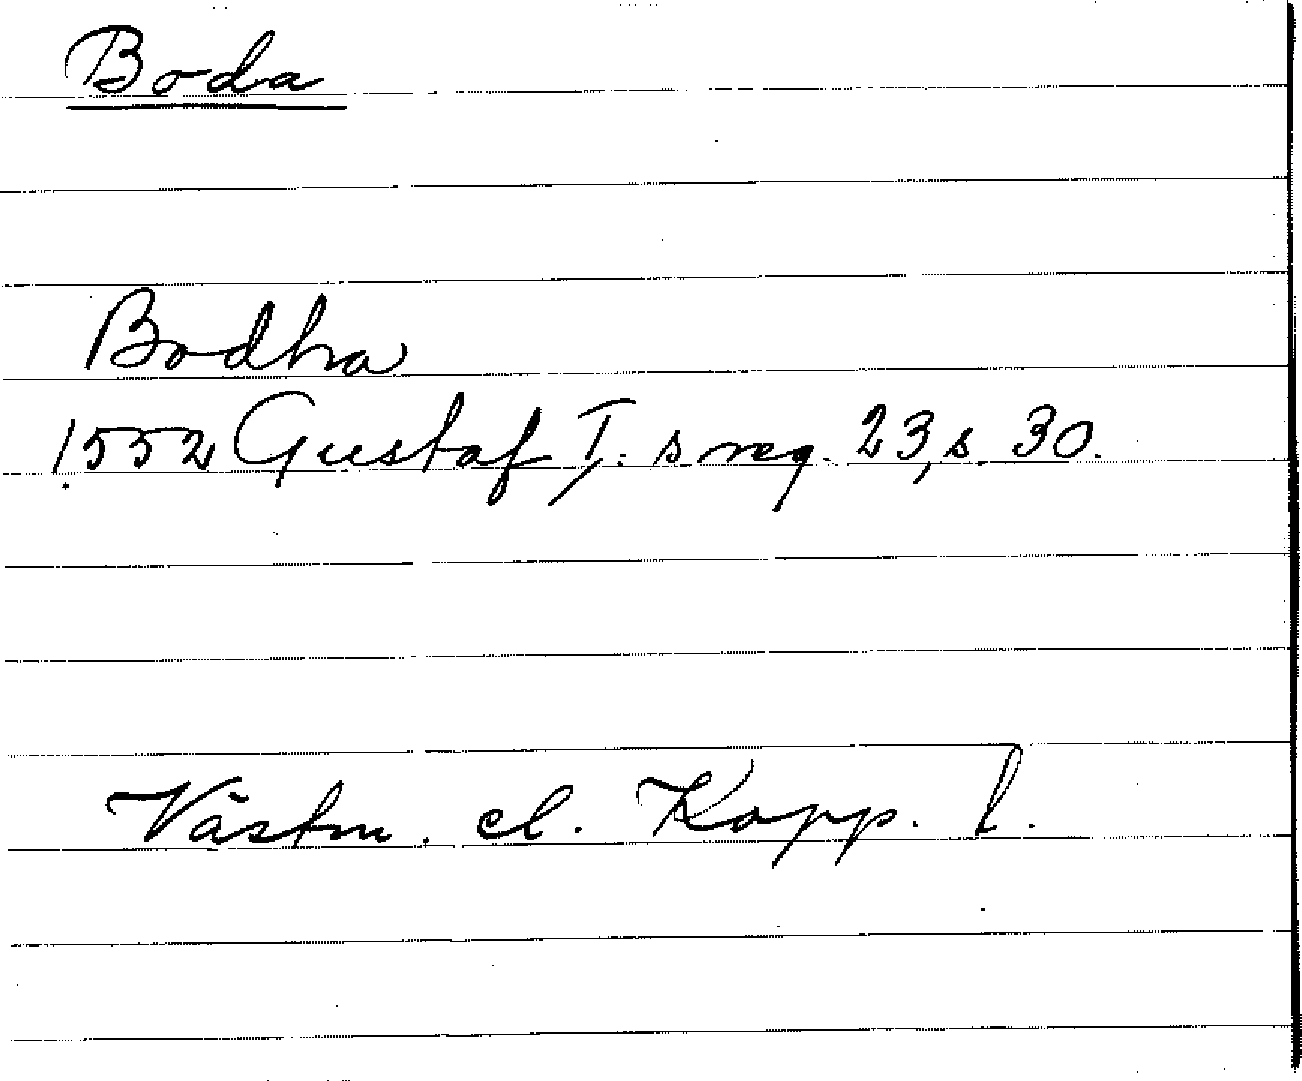 Boda
Bodha
1552 Gustaf I:s reg. 23, s. 30.
Västm. el. Kopp. l.